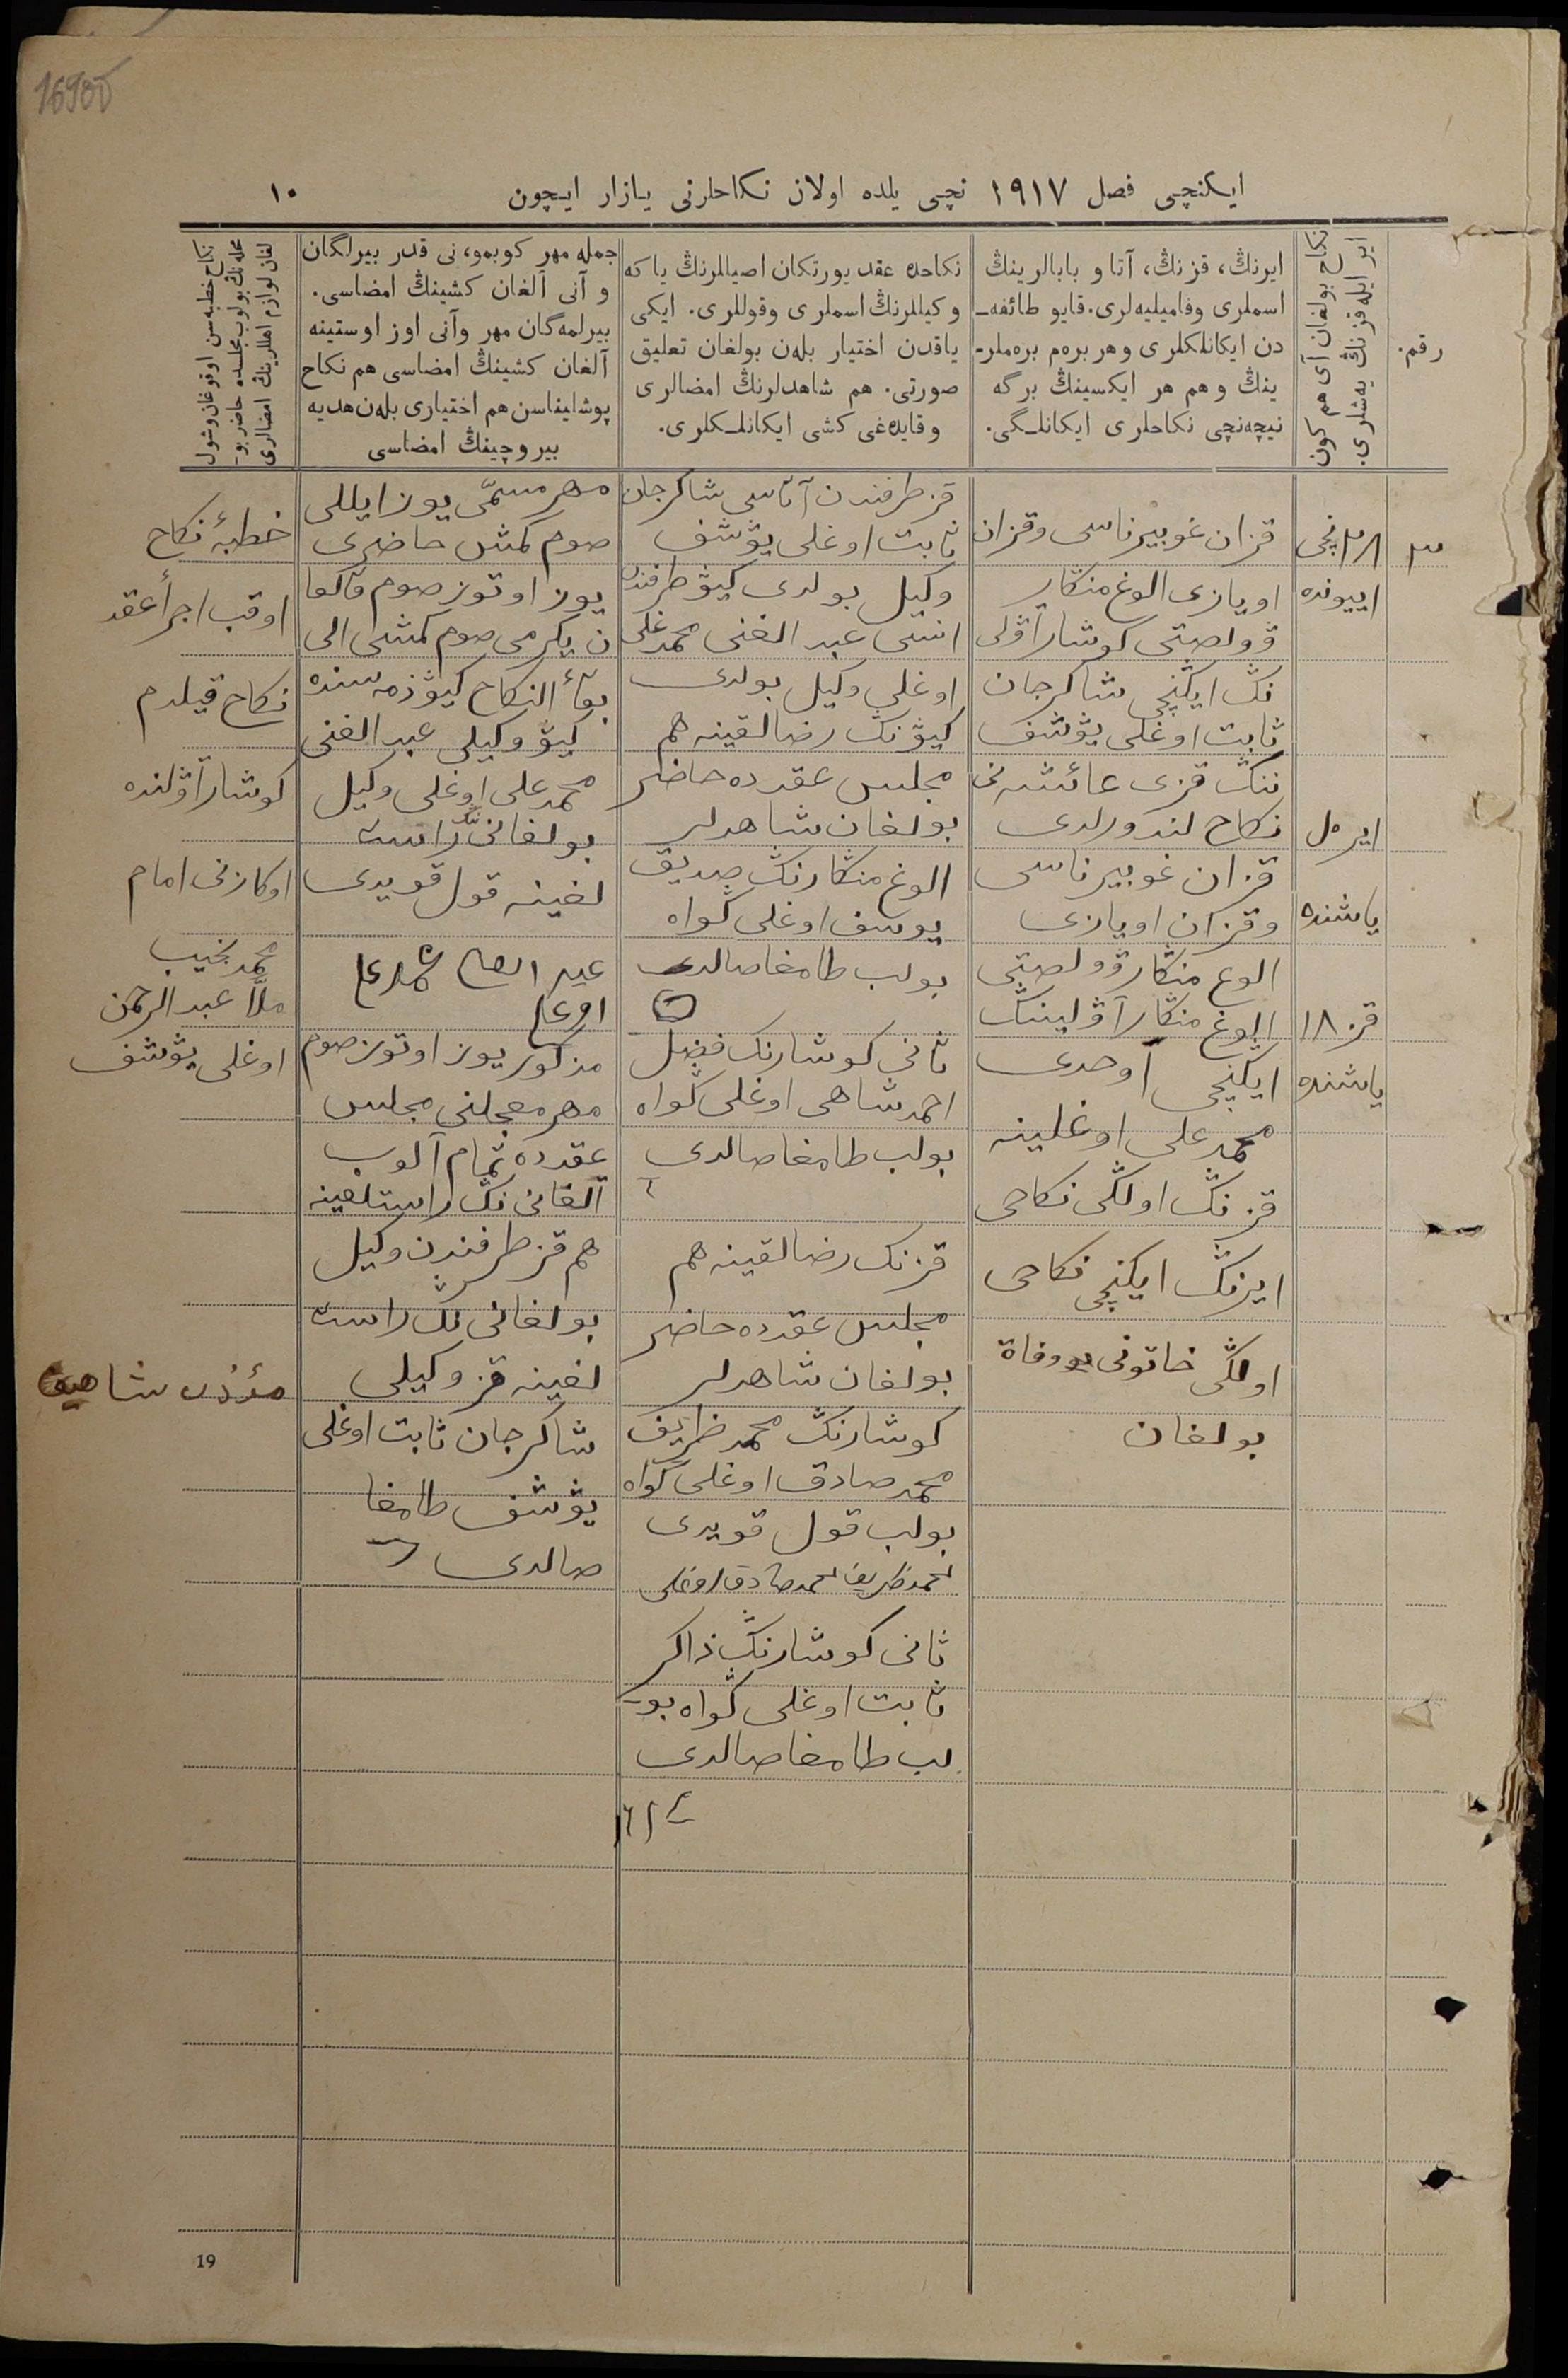 16900
ایکنچی فصل ١٩١٧ نچی یلده اولان نکاحلرنی یازار ایچون
١٠
رقم.
نکاح بولغان آی هم کون
ایر ایله قزنڭ یەشلری.
ایرنڭ، قزنڭ، آتا و بابالرینڭ
اسملری وفامیلیەلری. قایو طائفه‌ـ
دن ایکانلکلری وهر برەم برەملرـ
ینڭ وهم هر ایکسینڭ برگه
نیچەنچی نکاحلری ایکانلـگی.
نکاحده عقد یورتکان اصیللرنڭ یاکه
وکیللرنڭ اسملری وقوللری. ایکی
یاقدن اختیار بلەن بولغان تعلیق
صورتی. هم شاهدلرنڭ امضالری
وقایدەغی کشی ایکانلـکلری.
جمله مهر کوبمو، نی قدر بیرلگان
و آنی آلغان کشینڭ امضاسی.
بیرلمەگان مهر وآنی اوز اوستینه
آلغان کشینڭ امضاسی هم نکاح
پوشلیناسن هم اختیاری بلەن هدیه
بیروچینڭ امضاسی
نکاح خطبەسن اوقوغان وشول
محلەنڭ بولوب مجلسده حاضر بوـ
لغان لوازم اهللرینڭ امضالری
٣
٢٨ نچی
اییونده
ایر
یاشنده
قز ١٨
یاشنده
قزان غوبیرناسی وقزان
اویازی الوغ منکار
ۋولصتی کوشار آۋلی
نڭ ایکنچی شاکرجان
ثابت اوغلی یۋشف
ننڭ قزی عائشەنی
نکاح لندورلدی
قزان غوبیرناسی
وقزان اویازی
الوغ منکار ۋولصتی
الوغ منکار آۋلیننڭ
ایکنچی اوحدی
محمدعلی اوغلینه
قزنڭ اولگی نکاحی
ایرنڭ ایکنچی نکاحی
اولگی خاتونی وفاة
بولغان
قز طرفندن آتاسی شاکرجان
ثابت اوغلی یۋشف
وکیل بولدی کیۋ طرفندن
انتسی عبد الغنی محمدعلی
اوغلی وکیل بولدی
کیۋنڭ رضالقینه هم
مجلس عقدده حاضر
بولغان شاهدلر
الوغ منکارنڭ صدیق
یوسف اوغلی گواه
بولب طامغا صالدی
ثانی کوشارنڭ فضل
احمدشاهی اوغلی گواه
بولب طامغا صالدی
قزنڭ رضالقینه هم
مجلس عقدده حاضر
بولغان شاهدلر
کوشارنڭ محمد ظریف
محمد صادق اوغلی گواه
بولب قول قویدی
محمد ظریف محمد صادق اوغلی
ثانی کوشارنڭ ذاکر
ثابت اوغلی گواه بوـ
لب طامغا صالدی
مهر مسمّی یوز ایللی
صوم کمش حاضری
یوز اوتوز صوم قالغا
ن یکرمی صوم کمشی الی
بقاٴ النکاح کیۋ ذمەسنده
کیۋ وکیلی عبد الغنی
محمدعلی اوغلی وکیل
بولغانی نڭ راست
لغینه قول قویدی
عبد الغنی محمدعلی
اوغلی
مذکور یوز اوتوز صوم
مهر معجلنی مجلس
عقدده تمام آلوب
آلغانی نڭ راستلغینه
هم قز طرفندن وکیل
بولغانی نڭ راست
لغینه قز وکیلی
شاکرجان ثابت اوغلی
یۋشف طامغا
صالدی
خطبۀ نکاح
اوقب اجرأ عقد
نکاح قیلدم
کوشار آۋلنده
اوکازنی امام
محمد نجیب
ملّا عبد الرحمن
اوغلی یۋشف
مؤذن
19